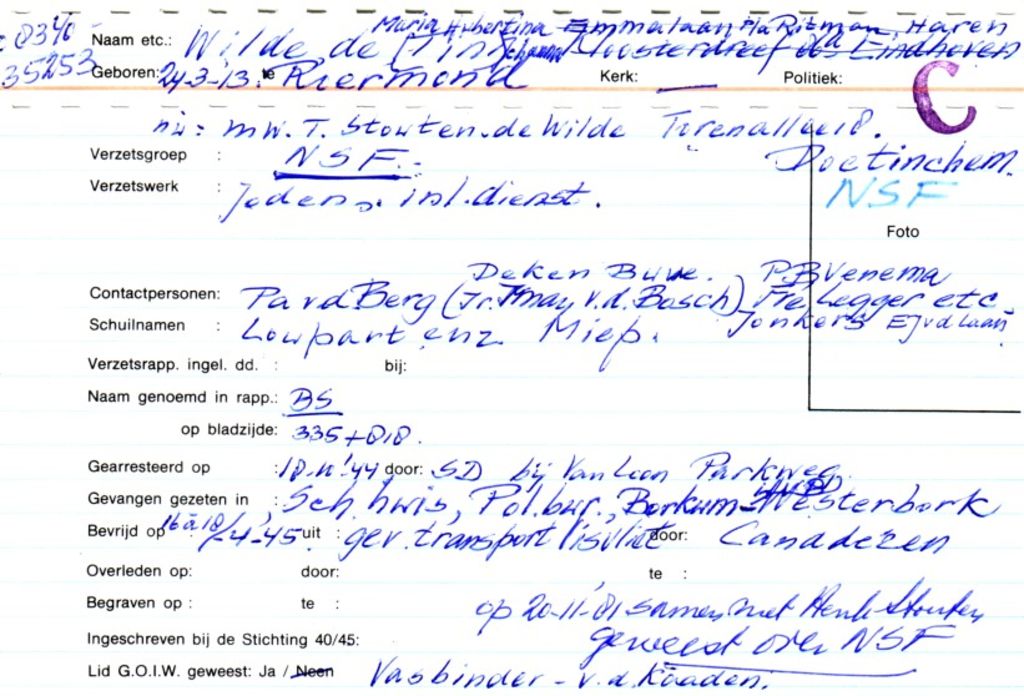 8340 Maria Hubertina Emmalaan Ritzman, Haren
35253 Naam etc.: Wilde de (Tini Kloosterdreef Eindhoven
Geboren: 24-3-13. te Roermond Kerk: — Politiek: C
nu: mw. T. Stouten-de Wilde 18.
Verzetsgroep : NSF. Doetinchem.
Verzetswerk : Joden inl.dienst. NSF
Foto
Deken Buve. PB Venema
Contactpersonen: Pa vd Berg (Ir. v.d. Bosch) Legger etc
Schuilnamen : Lowpart enz. Miep. Jonkers EJvdLaan
Verzetsrapp. ingel. dd. : bij:
Naam genoemd in rapp.: BS
op bladzijde: 335+818.
Gearresteerd op : 18-11-'44 door: SD bij Van Loon Parkweg.
Gevangen gezeten in : Sch.huis, Pol.bur., Borkum - Westerbork
Bevrijd op : 16 à 18/-4-45. uit : gev. transport door: Canadezen
Overleden op: door: te :
Begraven op : te : op 20-11-'81 samen met Henk Stouten
Ingeschreven bij de Stichting 40/45: geweest over NSF
Lid G.O.I.W. geweest: Ja / Neen Vasbinder - v.d. Kaaden.